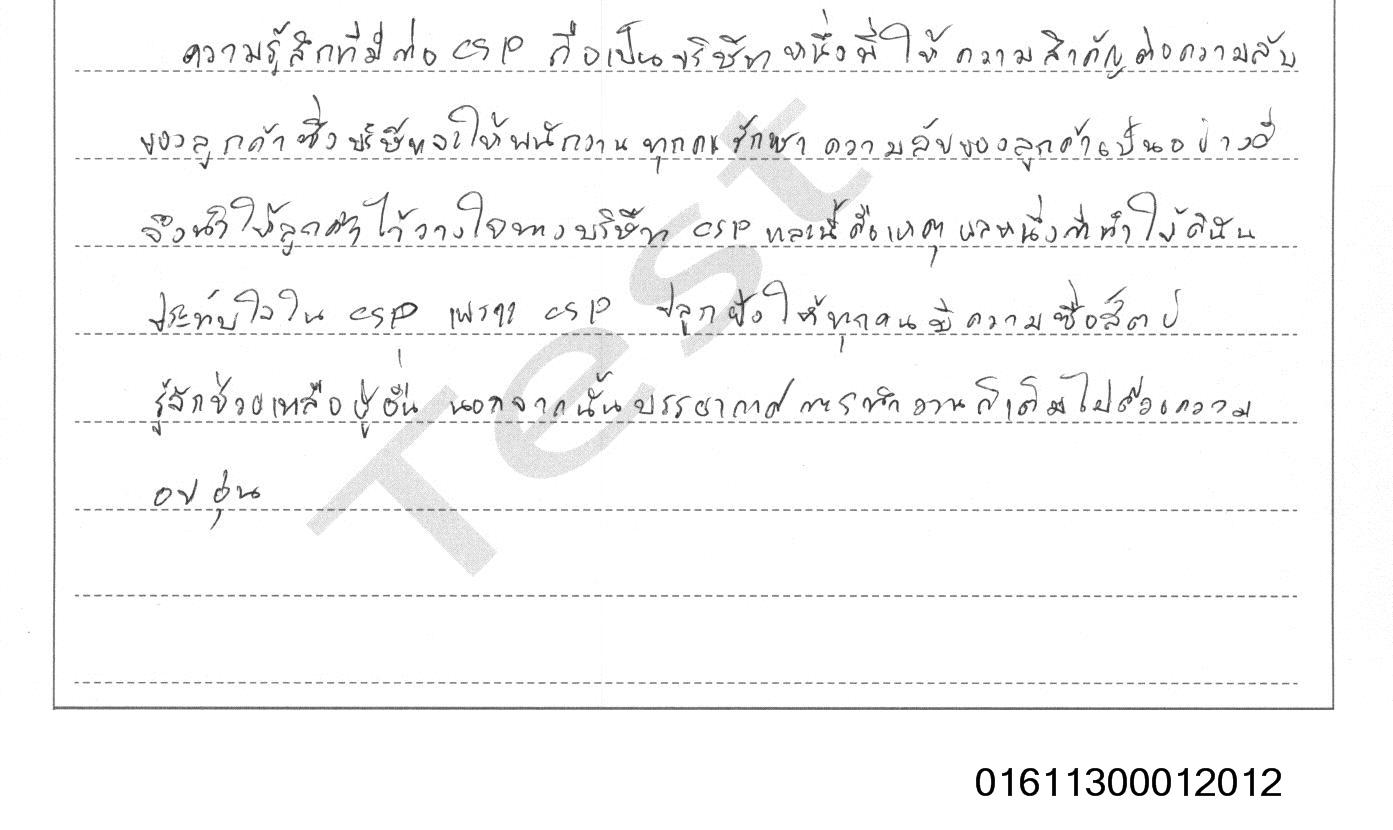 ความรู้สึกที่มีต่อ CSP ถือเป็นบริษัทหนึ่งที่ให้ความสำคัญต่อความลับ
ของลูกค้าซึ่งบริษัทจะให้พนักงานทุกคนรักษาความลับของลูกค้าเป็นอย่างดี
จึงทำให้ลูกค้าไว้วางใจทางบริษัท CSP และนี้คือเหตุผลหนึ่งที่ทำให้ดิฉัน
ประทับใจใน CSP เพราะ CSP ปลูกฝังให้ทุกคนมีความซื่อสัตย์
รู้จักช่วยเหลือผู้อื่น นอกจากนั้นบรรยากาศการทำงานก็เต็มไปด้วยความ
อบอุ่น
Test
01611300012012